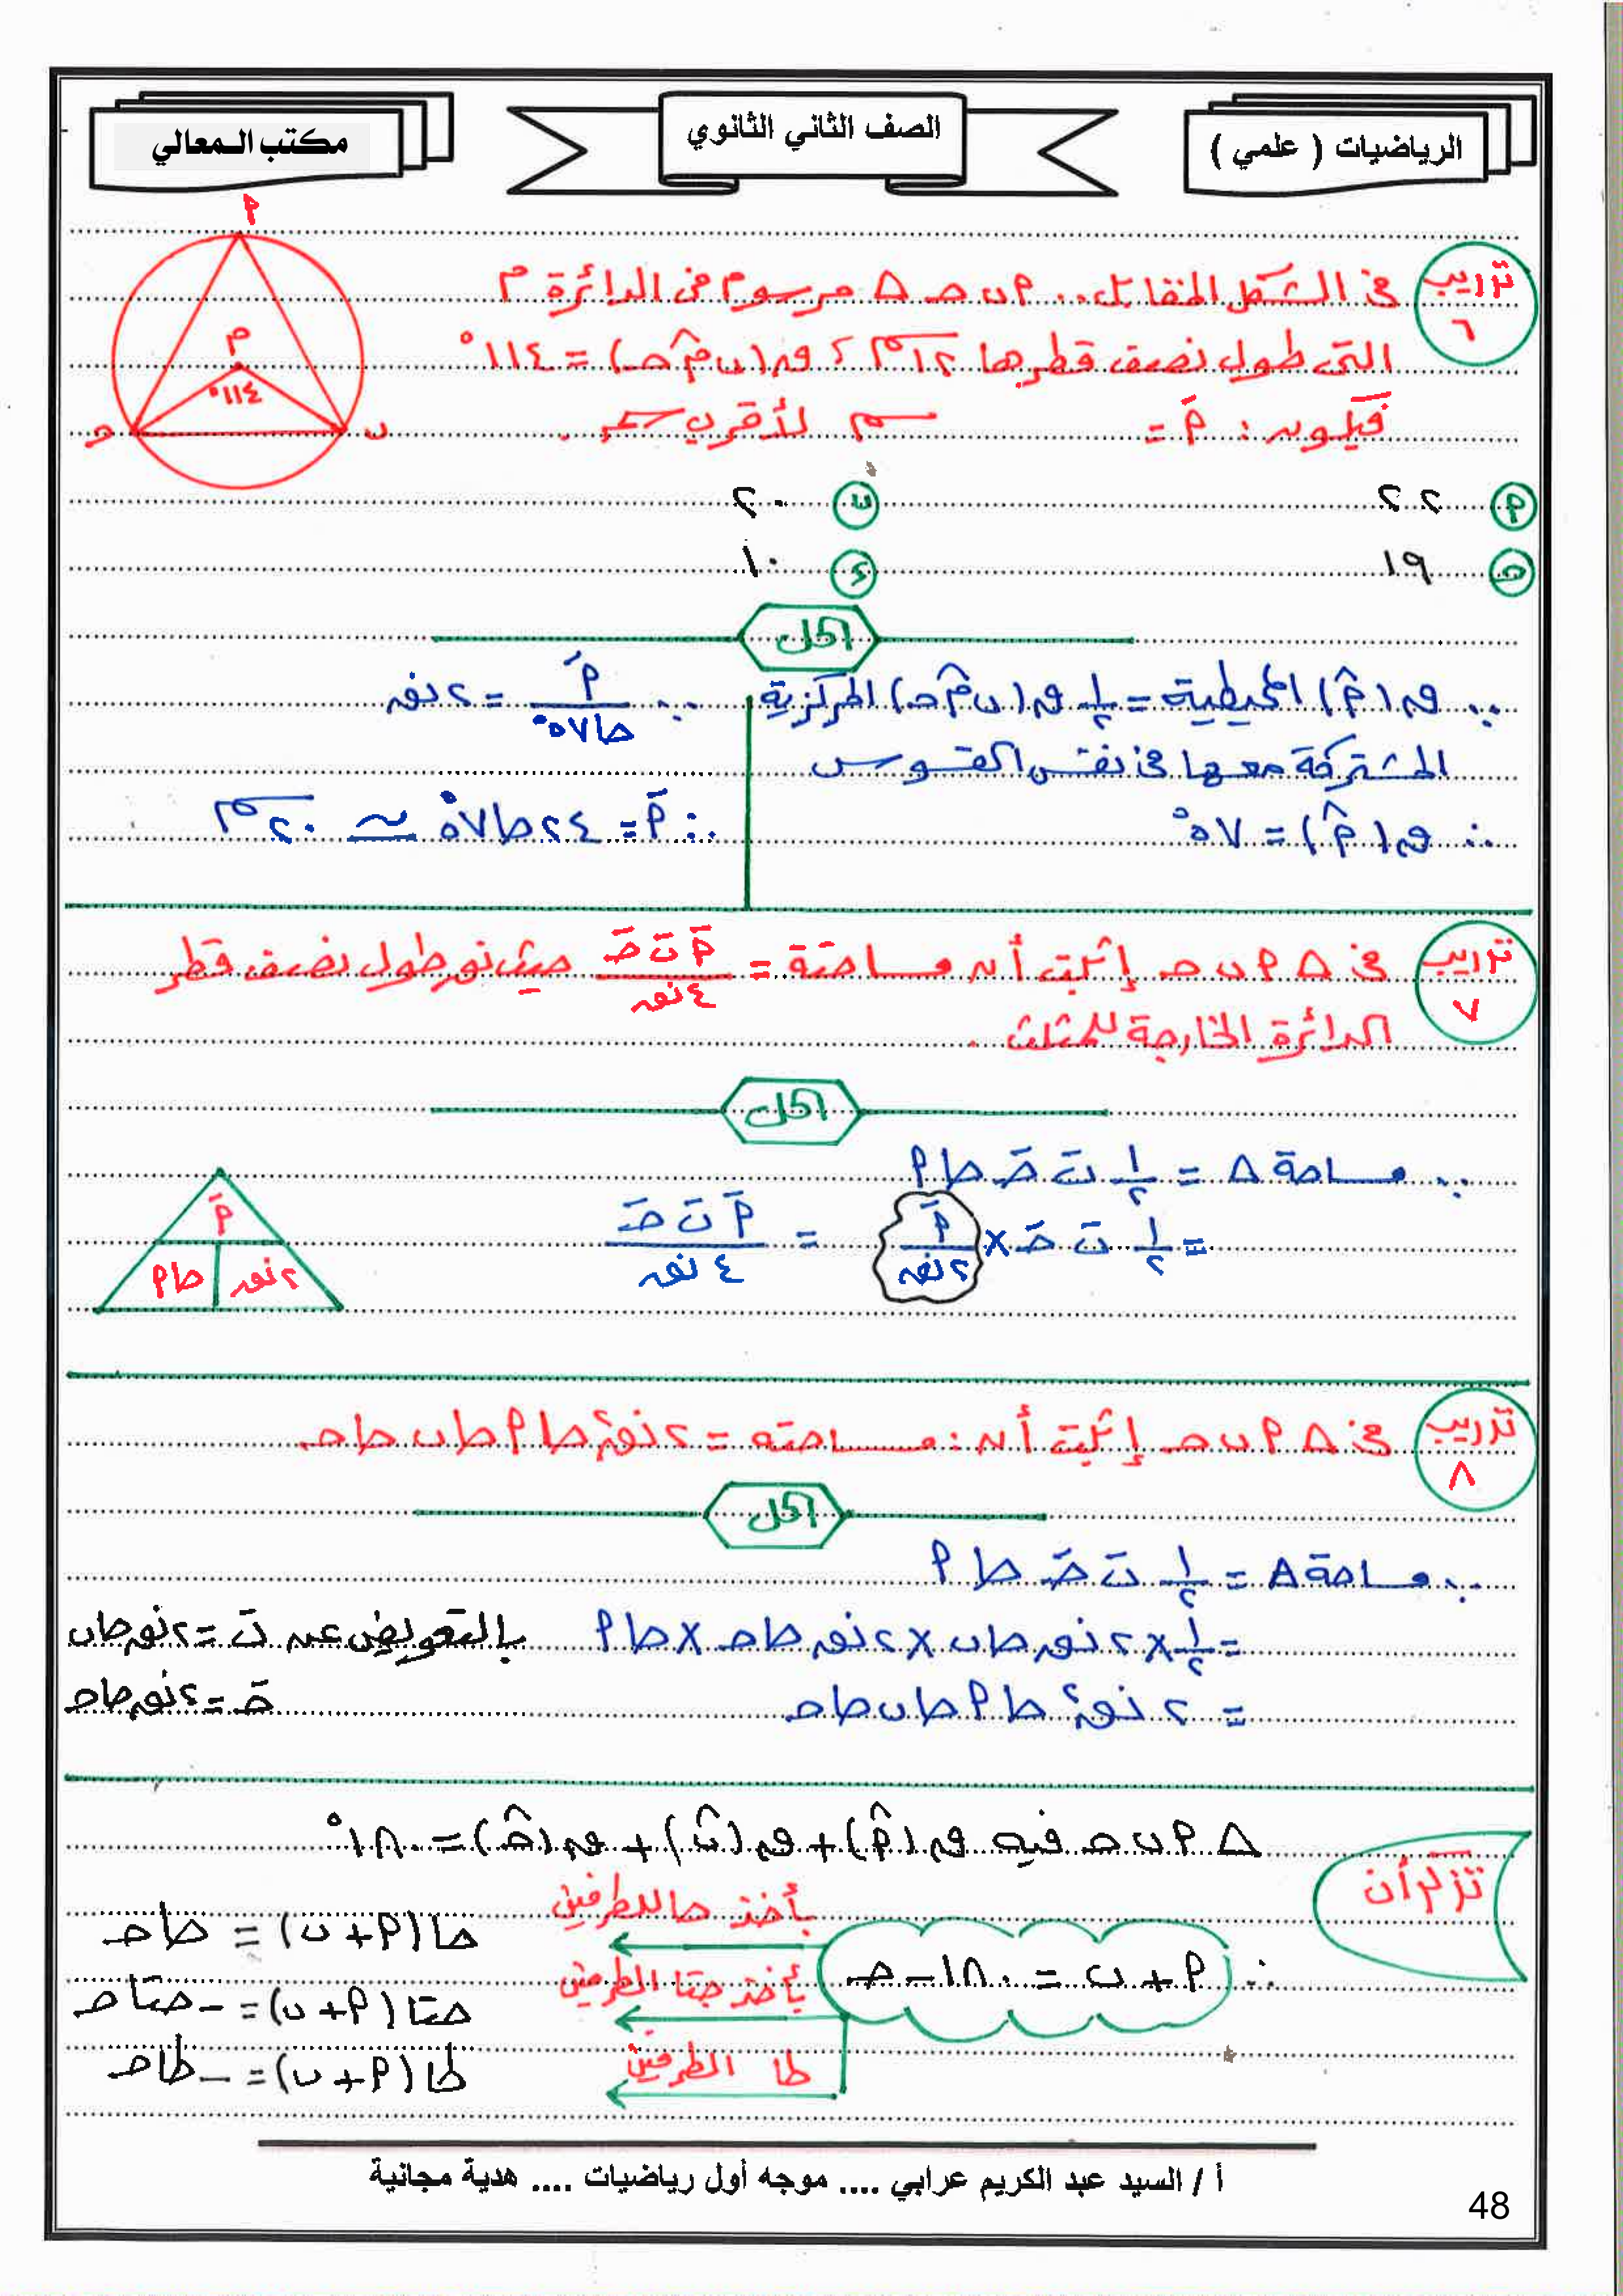 الرياضيات ( علمي )
الصف الثاني الثانوي
مكتب المعالي
تدريب ٦
في الشكل المقابل .. م ب ح Δ مرسوم في الدائرة م
التى طول نصف قطرها ١٢ سم ، ق(ب م̂ ح) = ١١٤°
فيكون : أَ = سم لأقرب سم .
أ م ب ح ١١٤°
أ ٢٢
ب ٢٠
ح ١٩
د ١٠
الحل
∵ ق(أ̂) المحيطية = ١/٢ ق(ب م̂ ح) المركزية
المشتركة معها في نفس القوس
∴ ق(أ̂) = ٥٧°
∵ أَ / حا ٥٧° = ٢ نق
∴ أَ = ٢٤ حا ٥٧° ≃ ٢٠ سم
تدريب ٧
في Δ أ ب ح إثبت أن مساحته = أَ بَ حَ / ٤ نق حيث نق طول نصف قطر
الدائرة الخارجة للمثلث .
الحل
∵ مساحة Δ = ١/٢ بَ حَ حا أ
= ١/٢ بَ حَ × أَ / ٢ نق = أَ بَ حَ / ٤ نق
أَ
٢ نق حا أ
تدريب ٨
في Δ أ ب ح إثبت أن : مساحته = ٢ نق٢ حا أ حا ب حا ح
الحل
∵ مساحة Δ = ١/٢ بَ حَ حا أ
= ١/٢ × ٢ نق حا ب × ٢ نق حا ح × حا أ بالتعويض عن بَ = ٢ نق حا ب
= ٢ نق٢ حا أ حا ب حا ح حَ = ٢ نق حا ح
تذكر أن
Δ أ ب ح فيه ق(أ̂) + ق(ب̂) + ق(ح̂) = ١٨٠°
∴ أ + ب = ١٨٠ - ح
بأخذ حا للطرفين حا(أ + ب) = حا ح
بأخذ جتا الطرفين حتا(أ + ب) = - حتا ح
طا الطرفين طا(أ + ب) = - طا ح
أ / السيد عبد الكريم عرابي .... موجه أول رياضيات .... هدية مجانية
48